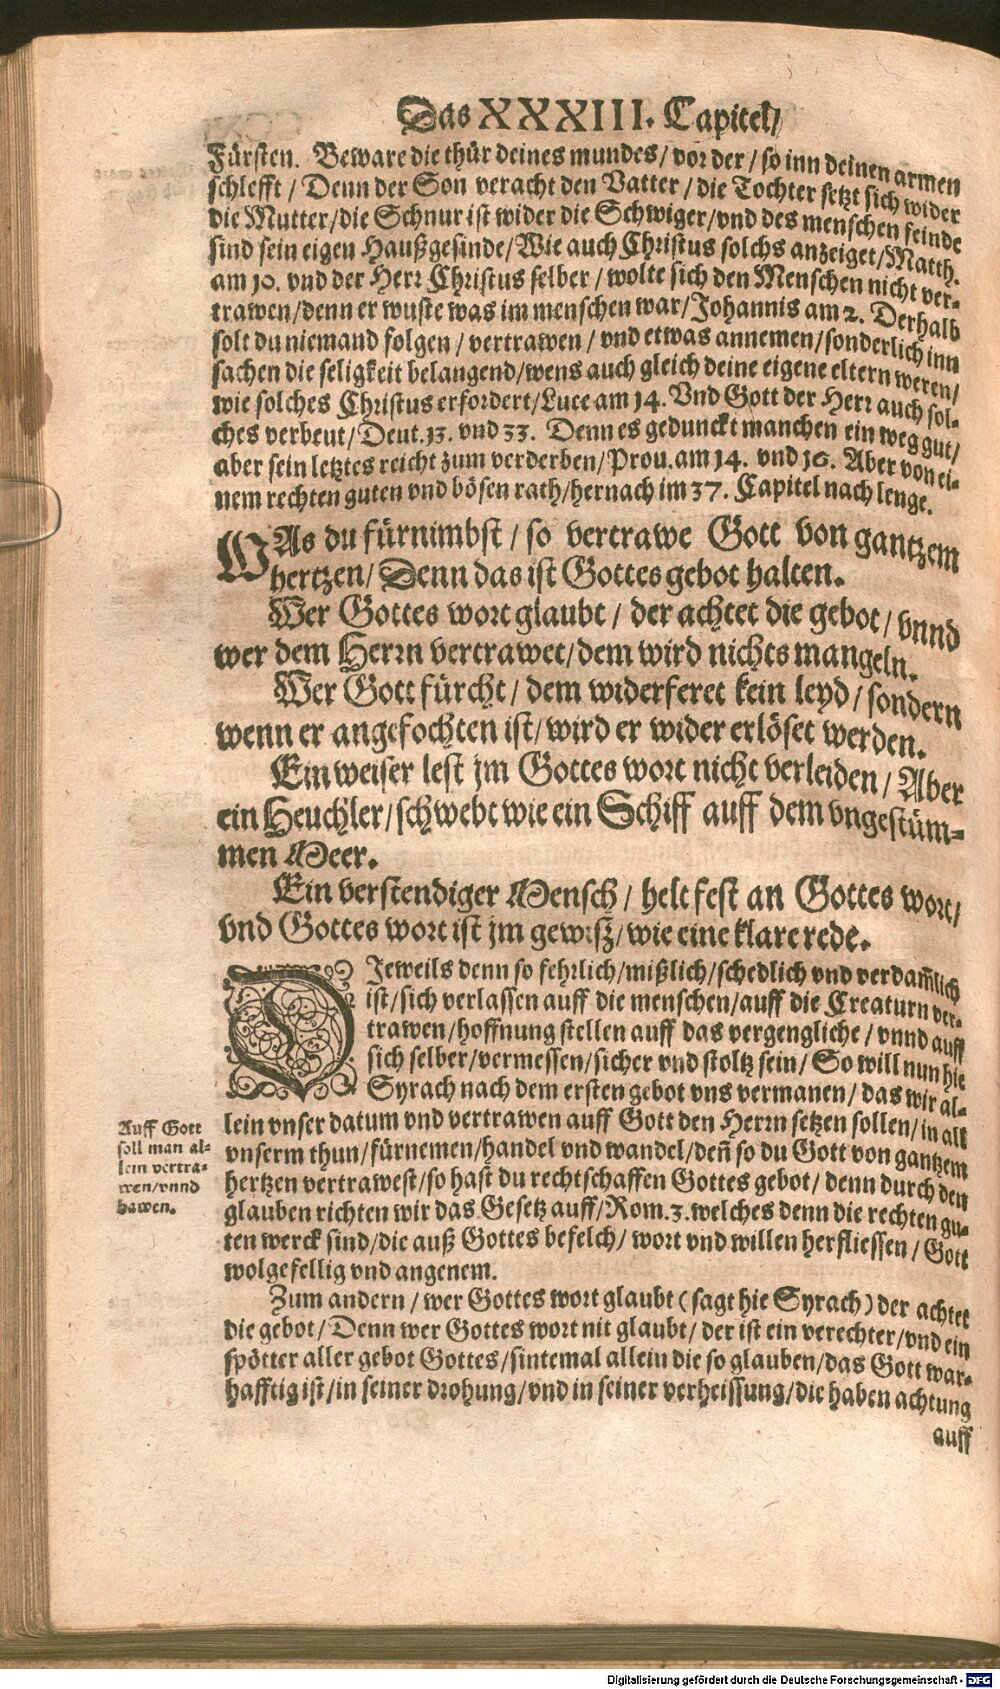 Das XXXIII. Capitel/
Fürsten. Beware die thür deines mundes/ vor der/ so inn deinen armen
schlefft/ Denn der Son veracht den Vatter/ die Tochter setzt sich wider
die Mutter/die Schnur ist wider die Schwiger/vnd des menschen feinde
sind sein eigen Haußgesinde/Wie auch Christus solchs anzeiget/Matth.
am 10. vnd der Herr Christus selber/ wolte sich den Menschen nicht ver-
trawen/denn er wuste was im menschen war/Johannis am 2. Derhalb
solt du niemand folgen/ vertrawen/ vnd etwas annemen/sonderlich inn
sachen die seligkeit belangend/wens auch gleich deine eigene eltern weren/
wie solches Christus erfordert/Luce am 14. Vnd Gott der Herr auch sol-
ches verbeut/Deut.13. vnd 33. Denn es gedunckt manchen ein weg gut/
aber sein letztes reicht zum verderben/Prou.am 14. vnd 16. Aber von ei-
nem rechten guten vnd bösen rath/hernach im 37. Capitel nach lenge.
WAs du fürnimbst/ so vertrawe Gott von gantzem
hertzen/ Denn das ist Gottes gebot halten.
Wer Gottes wort glaubt/ der achtet die gebot/ vnnd
wer dem Herrn vertrawet/dem wird nichts mangeln.
Wer Gott fürcht/ dem widerferet kein leyd/ sondern
wenn er angefochten ist/wird er wider erlöset werden.
Ein weiser lest jm Gottes wort nicht verleiden/ Aber
ein Heuchler/schwebt wie ein Schiff auff dem vngestüm-
men Meer.
Ein verstendiger Mensch/ helt fest an Gottes wort/
vnd Gottes wort ist jm gewiß/wie eine klare rede.
DJeweils denn so fehrlich/mißlich/schedlich vnd verdam̄lich
ist/sich verlassen auff die menschen/auff die Creaturn ver-
trawen/hoffnung stellen auff das vergengliche/ vnnd auff
sich selber/vermessen/sicher vnd stoltz sein/ So will nun hie
Syrach nach dem ersten gebot vns vermanen/ das wir al-
lein vnser datum vnd vertrawen auff Gott den Herrn setzen sollen/in all
vnserm thun/fürnemen/handel vnd wandel/den̄ so du Gott von gantzem
hertzen vertrawest/so hast du rechtschaffen Gottes gebot/ denn durch den
glauben richten wir das Gesetz auff/Rom.3.welches denn die rechten gu-
ten werck sind/die auß Gottes befelch/ wort vnd willen herfliessen/ Gott
wolgefellig vnd angenem.
Auff Gott
soll man al-
lein vertra-
wen/vnnd
bawen.
Zum andern/ wer Gottes wort glaubt (sagt hie Syrach) der achtet
die gebot/ Denn wer Gottes wort nit glaubt/ der ist ein verechter/vnd ein
spötter aller gebot Gottes/sintemal allein die so glauben/das Gott war-
hafftig ist/in seiner drohung/vnd in seiner verheissung/die haben achtung
auff
Digitalisierung gefördert durch die Deutsche Forschungsgemeinschaft - DFG